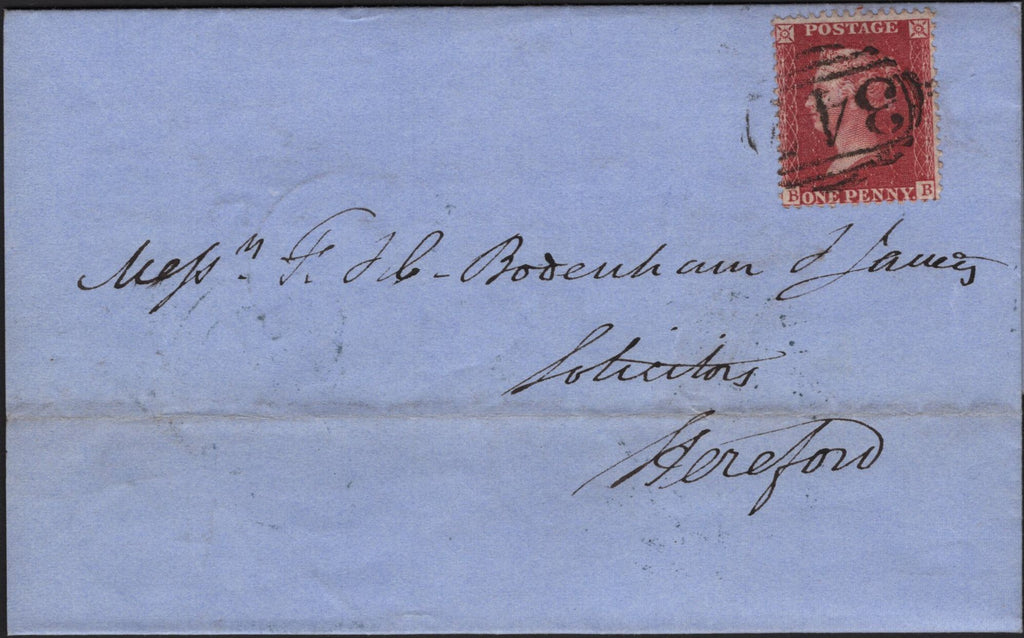 POSTAGE
B ONE PENNY. B
Messrs F. & C. Bodenham & James
Solicitors
Hereford